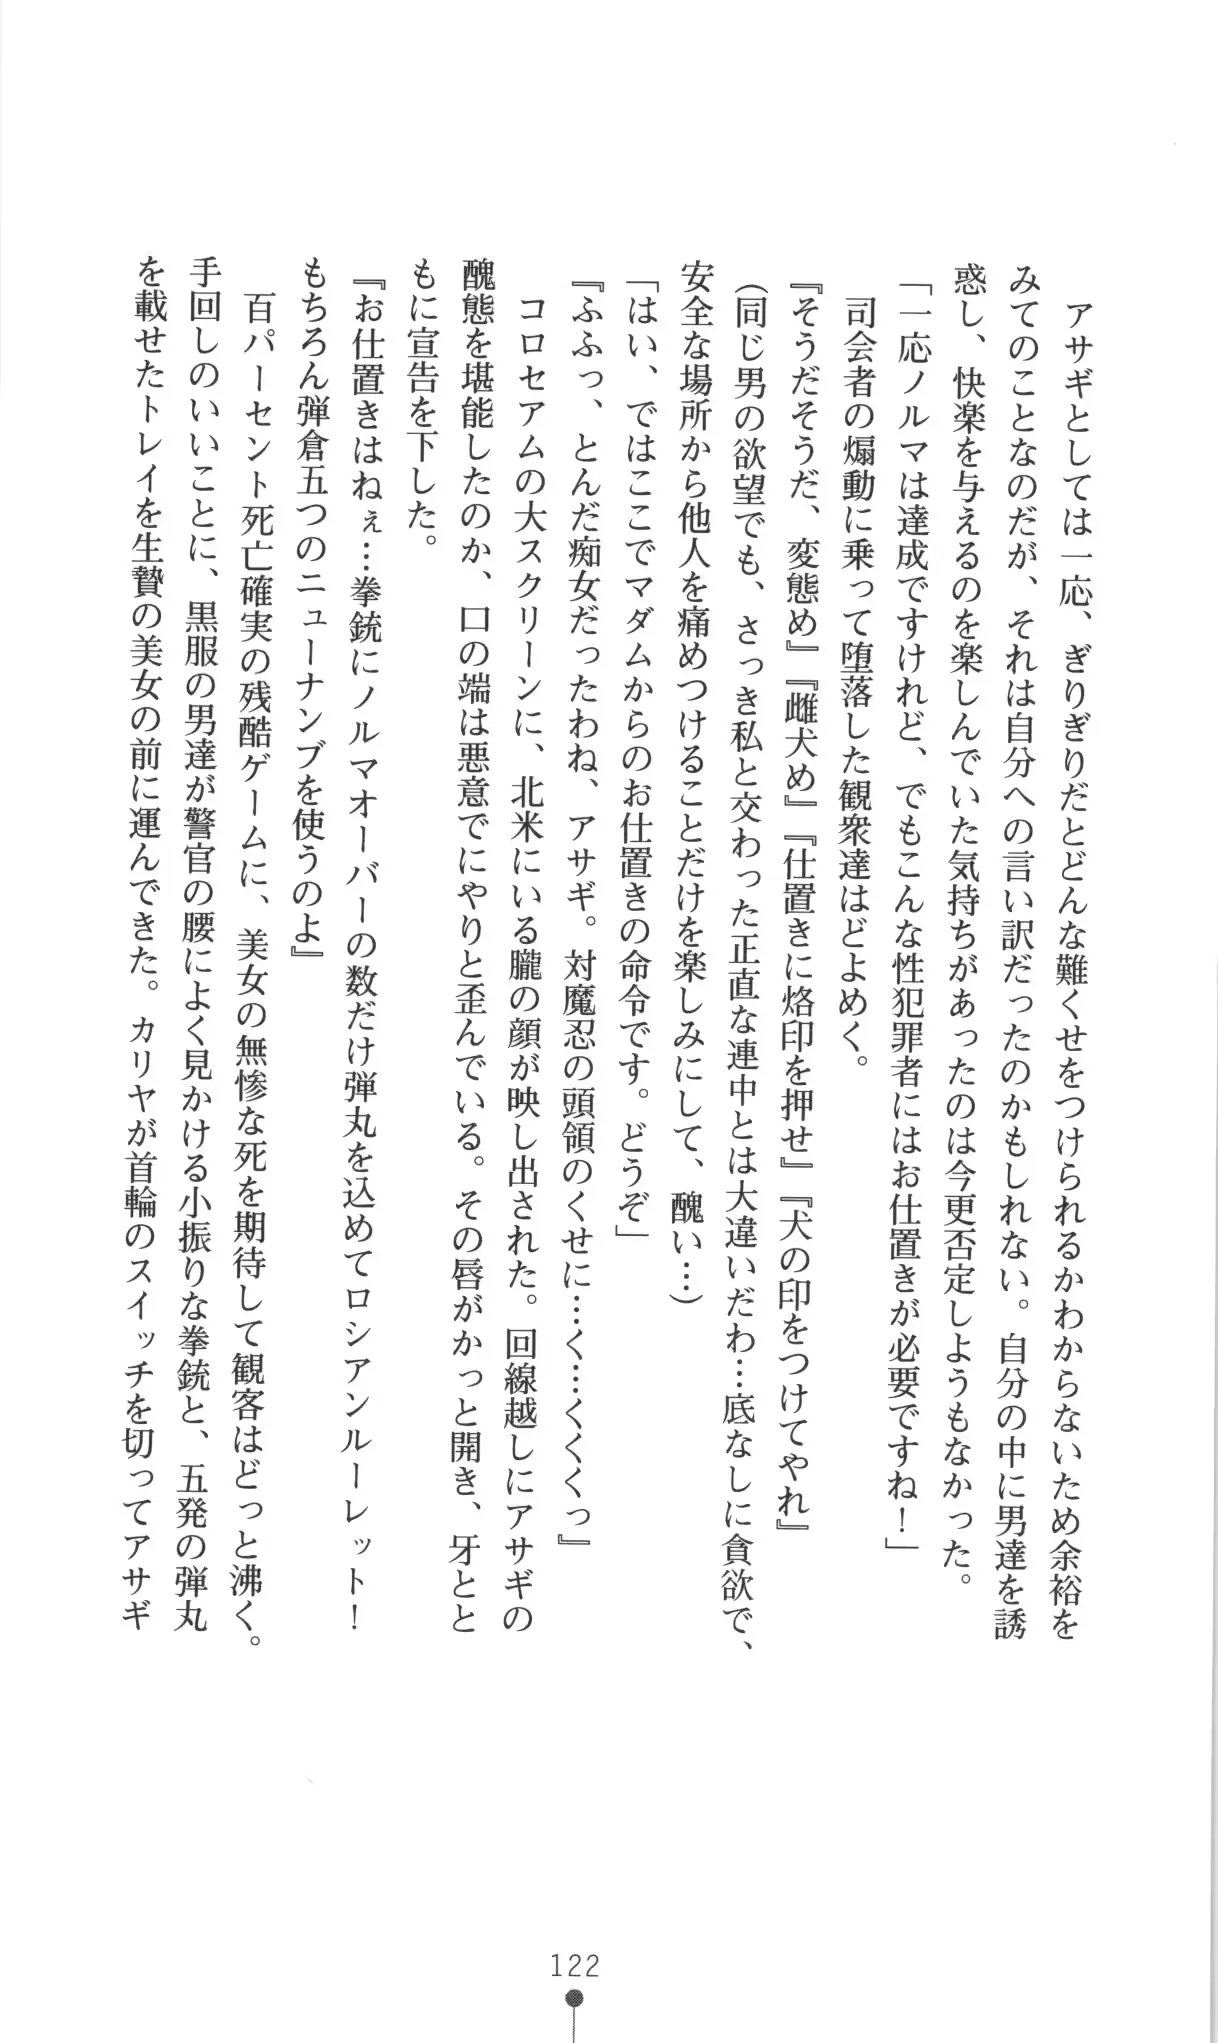 アサギとしては一応、ぎりぎりだとどんな難くせをつけられるかわからないため余裕を
みてのことなのだが、それは自分への言い訳だったのかもしれない。自分の中に男達を誘
惑し、快楽を与えるのを楽しんでいた気持ちがあったのは今更否定しようもなかった。
「一応ノルマは達成ですけれど、でもこんな性犯罪者にはお仕置きが必要ですね！」
司会者の煽動に乗って堕落した観衆達はどよめく。
『そうだそうだ、変態め』『雌犬め』『仕置きに烙印を押せ』『犬の印をつけてやれ』
（同じ男の欲望でも、さっき私と交わった正直な連中とは大違いだわ…底なしに貪欲で、
安全な場所から他人を痛めつけることだけを楽しみにして、醜い…）
「はい、ではここでマダムからのお仕置きの命令です。どうぞ」
『ふふっ、とんだ痴女だったわね、アサギ。対魔忍の頭領のくせに…く…くくくっ』
コロセアムの大スクリーンに、北米にいる朧の顔が映し出された。回線越しにアサギの
醜態を堪能したのか、口の端は悪意でにやりと歪んでいる。その唇がかっと開き、牙とと
もに宣告を下した。
『お仕置きはねぇ…拳銃にノルマオーバーの数だけ弾丸を込めてロシアンルーレット！
もちろん弾倉五つのニューナンブを使うのよ』
百パーセント死亡確実の残酷ゲームに、美女の無惨な死を期待して観客はどっと沸く。
手回しのいいことに、黒服の男達が警官の腰によく見かける小振りな拳銃と、五発の弾丸
を載せたトレイを生贄の美女の前に運んできた。カリヤが首輪のスイッチを切ってアサギ
122